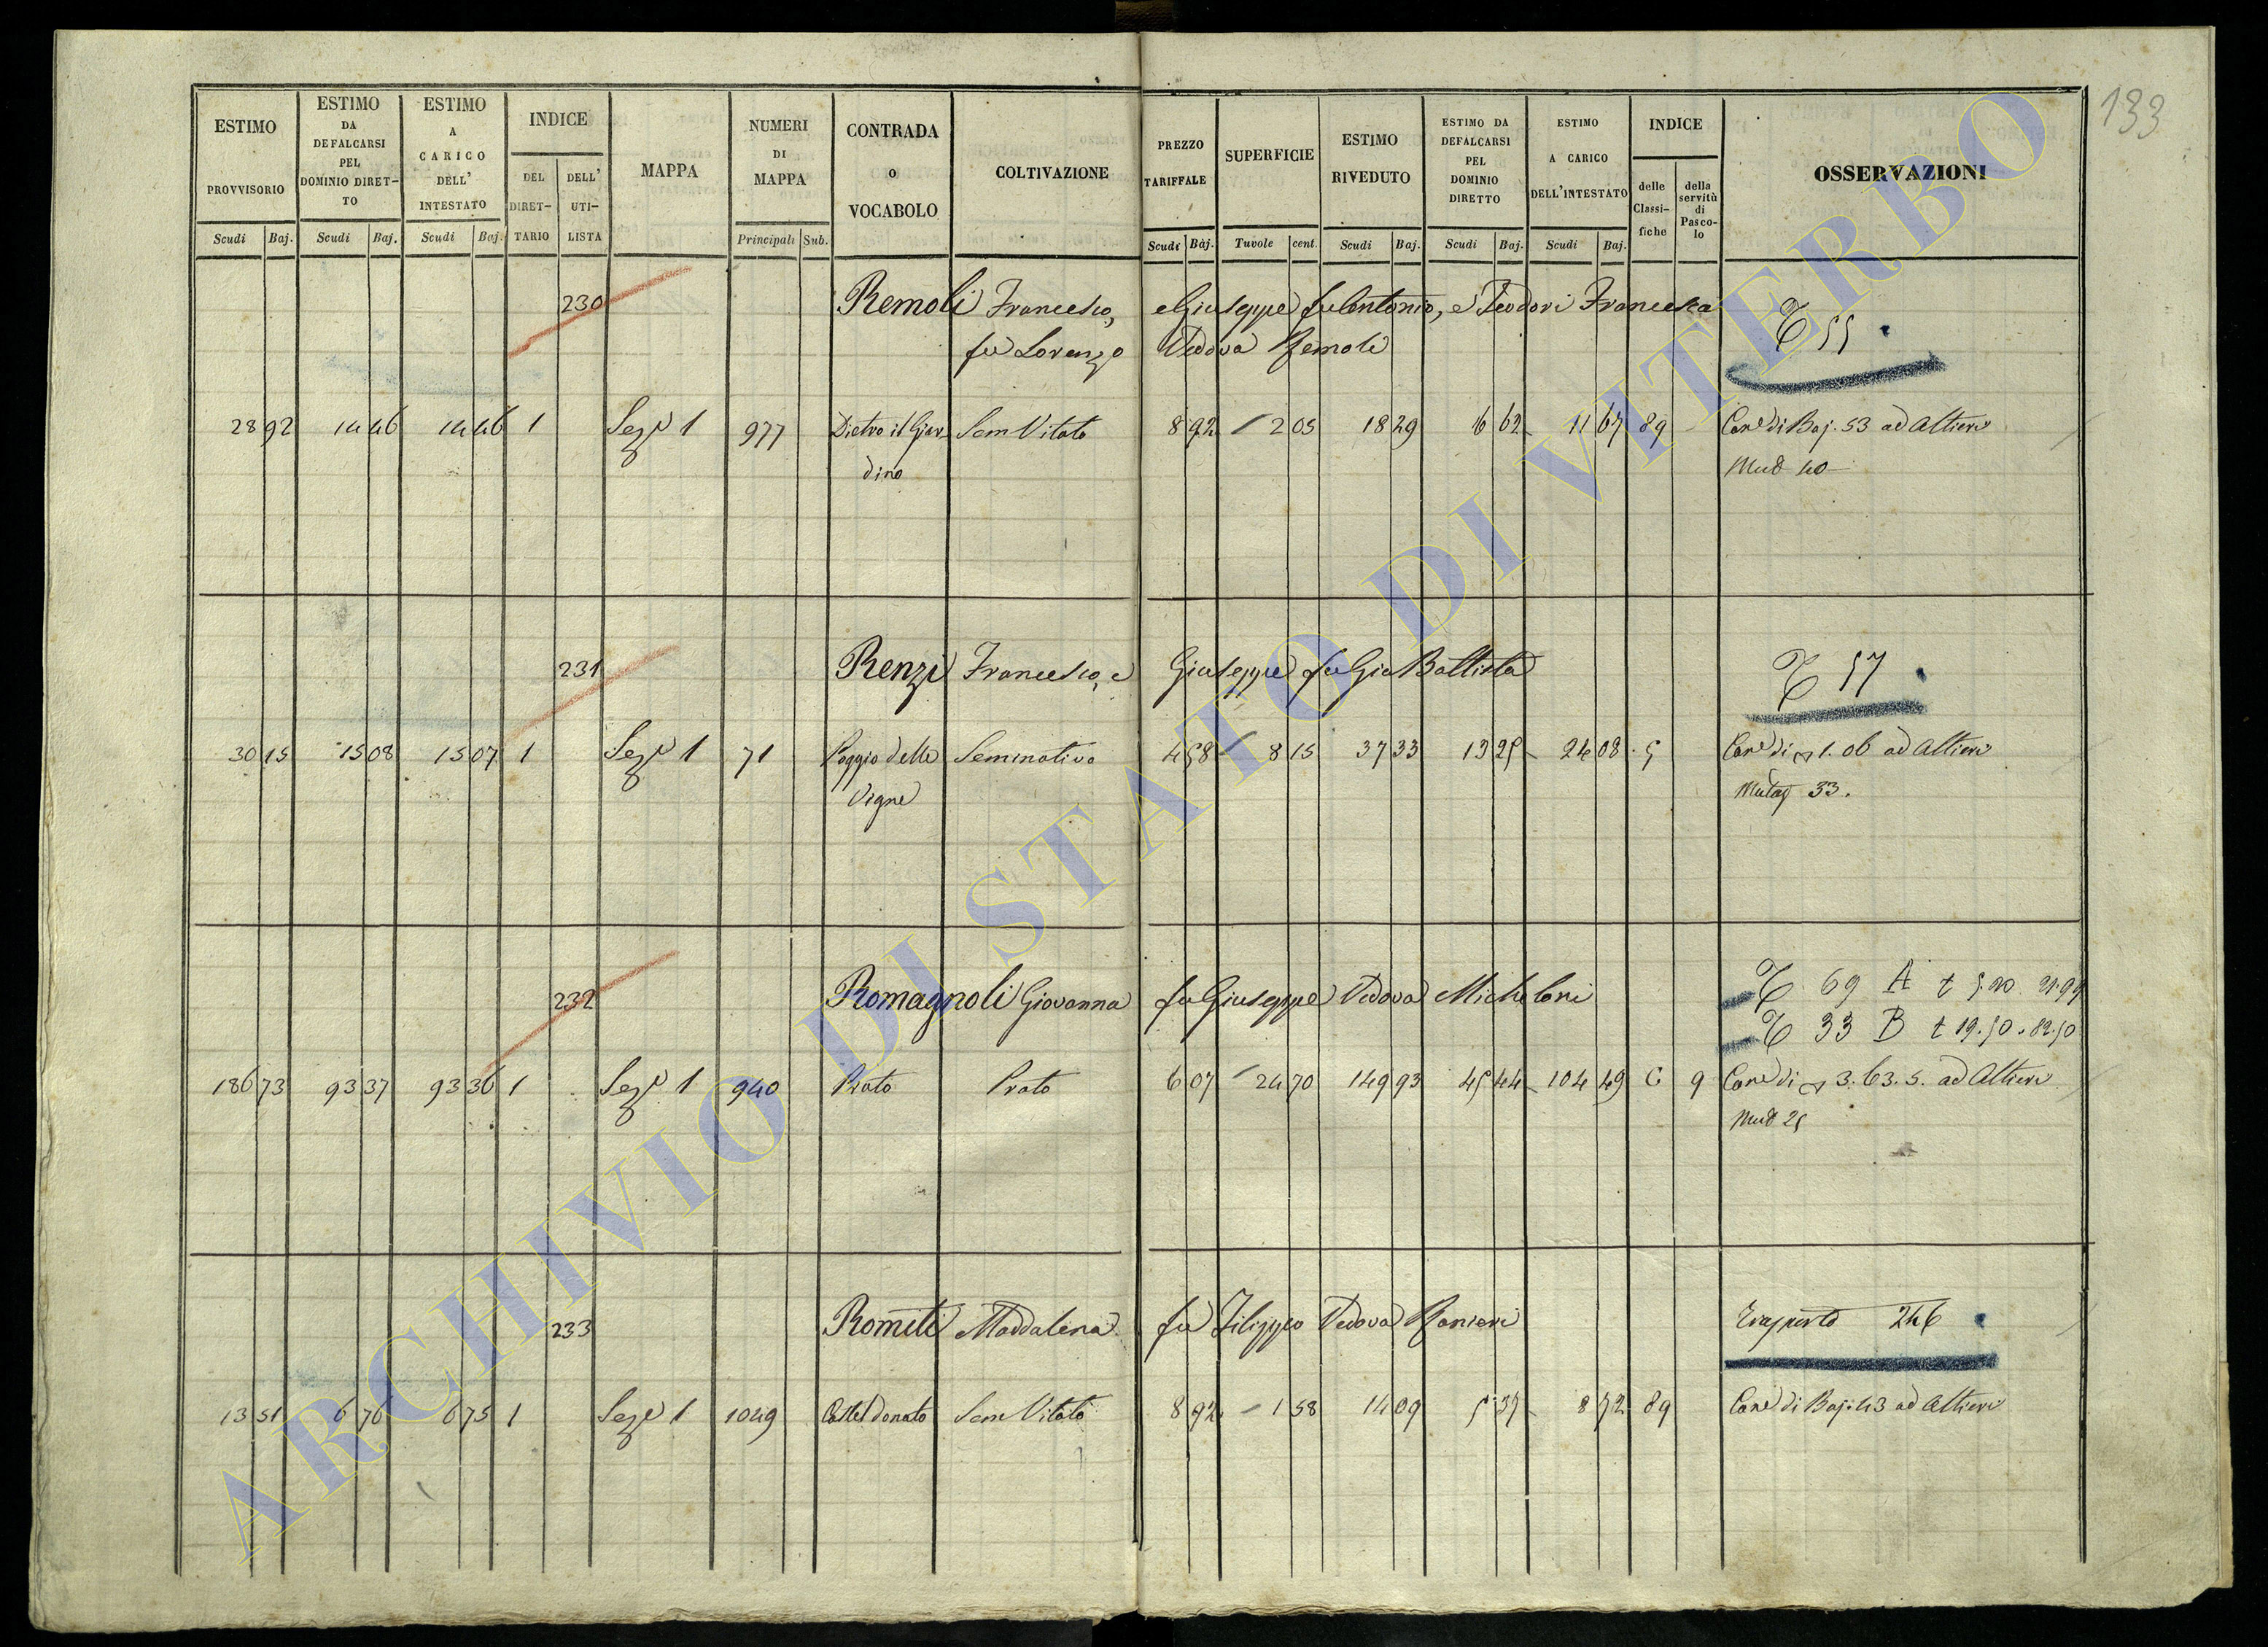 133
ESTIMO PROVVISORIO Scudi Baj.
ESTIMO DA DEFALCARSI PEL DOMINIO DIRETTO Scudi Baj.
ESTIMO A CARICO DELL' INTESTATO Scudi Baj.
INDICE DEL DIRETTARIO DELL' UTILISTA
MAPPA
NUMERI DI MAPPA Principali Sub.
CONTRADA o VOCABOLO
COLTIVAZIONE
PREZZO TARIFFALE Scudi Baj.
SUPERFICIE Tavole cent.
ESTIMO RIVEDUTO Scudi Baj.
ESTIMO DA DEFALCARSI PEL DOMINIO DIRETTO Scudi Baj.
ESTIMO A CARICO DELL'INTESTATO Scudi Baj.
INDICE delle Classifiche della servitù di Pascolo
OSSERVAZIONI
230 Remoli Francesco, e Giuseppe fu Antonio, e Teodori Francesca
fu Lorenzo Vedova Remoli
T 55
28 92 14 46 14 46 1 Sez.e 1 977 Dietro il Giar- Sem Vitato 8 92 2 05 18 29 6 62 11 67 89 Can.e di Baj. 53 ad Altieri
dino
231 Renzi Francesco, e Giuseppe fu Gio Battista
T 57
30 15 15 08 15 07 1 Sez.e 1 71 Poggio delle Seminativo 4 58 8 15 37 33 13 25 24 08 5 Can.e di 1.06 ad Altieri
Vigne 33.
232 Romagnoli Giovanna fu Giuseppe Vedova Micheloni
T 69 A t 5.20
T 33 B t 19.50.82.50
186 73 93 37 93 36 1 Sez.e 1 940 Prato Prato 6 07 24 70 149 93 45 44 104 49 6 9 Can.e di 3.63.5. ad Altieri
25
233 Romiti Maddalena fu Filippo Vedova Ranieri
Trasporto 246
13 51 6 76 6 75 1 Sez.e 1 1049 Castel donato Sem Vitato 8 92 1 58 14 09 5 37 8 72 89 Can.e di Baj. 43 ad Altieri
ARCHIVIO DI STATO DI VITERBO